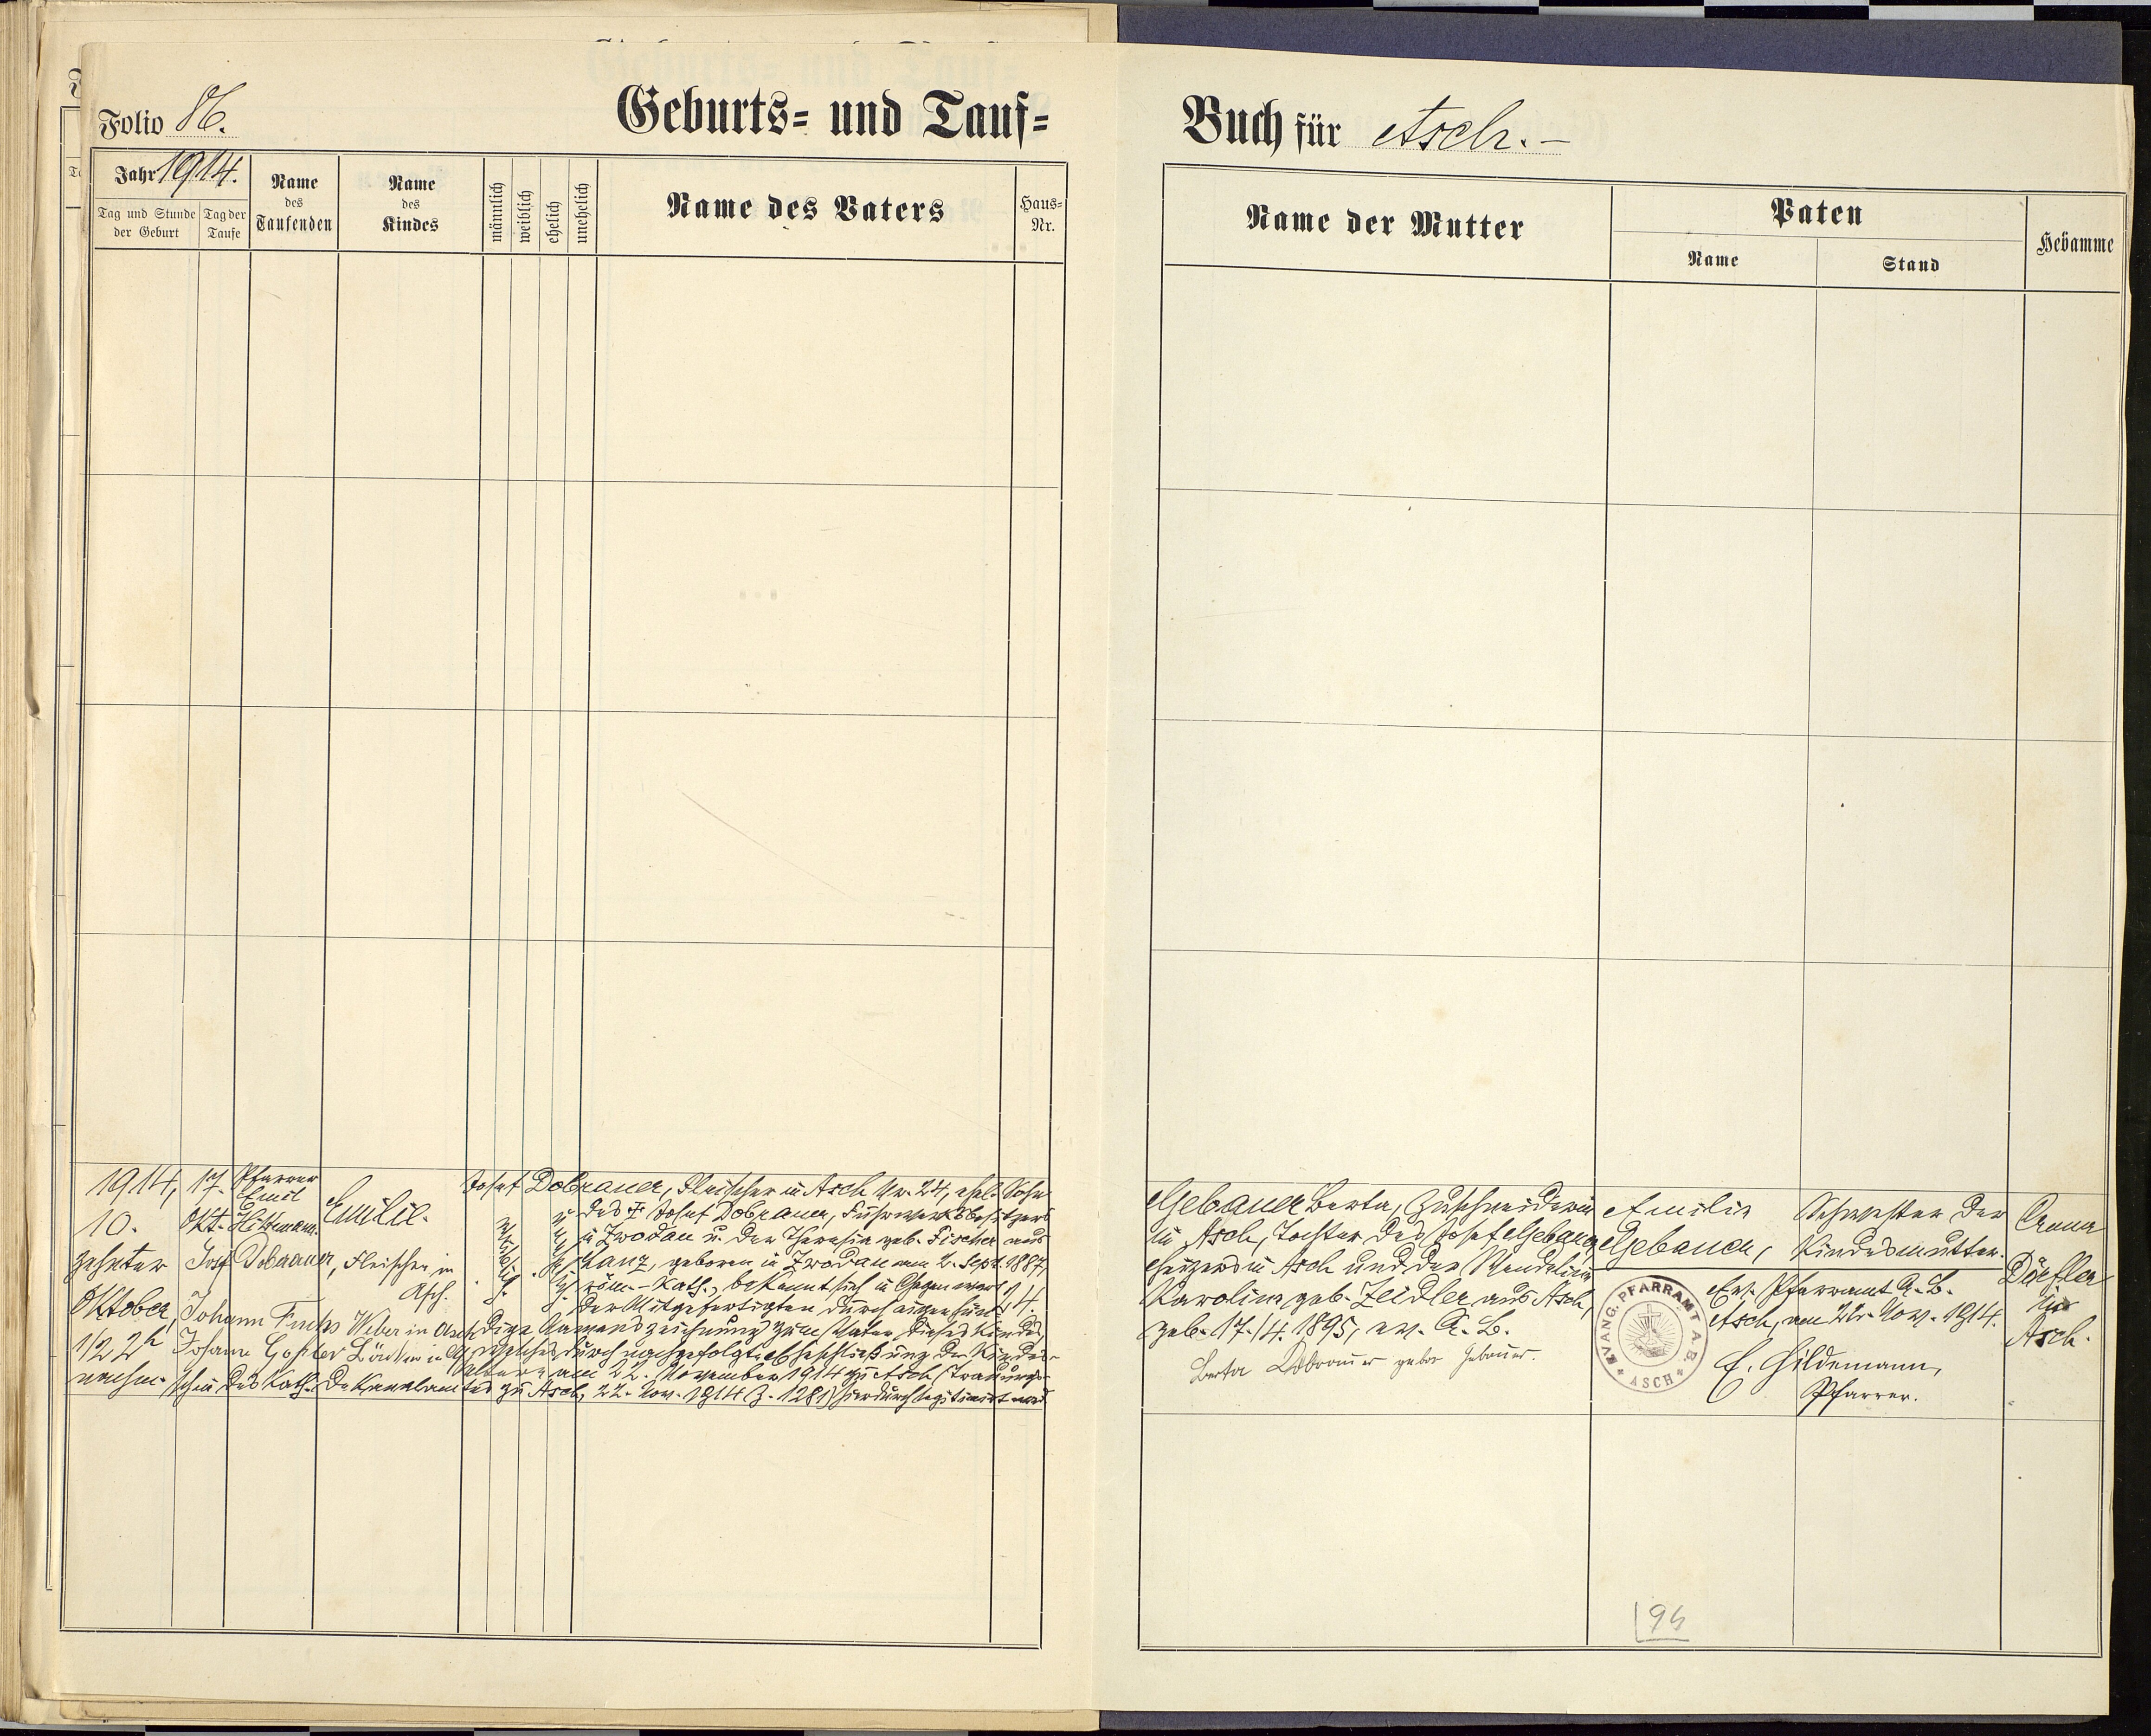 Folio 86.
Geburts- und Tauf-
Buch für Asch.-
Jahr 1914.
Tag und Stunde der Geburt
Tag der Taufe
Name des Taufenden
Name des Kindes
männlich
weiblich
ehelich
unehelich
Name des Vaters
Haus-Nr.
Name der Mutter
Paten
Name
Stand
Hebamme
1914,
10.
zehnter
Oktober,
1/2 2h
17.
Okt.
Pfarrer
Emil
Emilie.
Josef Dobrauer, Fleischer in Asch Nr. 24, ehel. Sohn
des † Josef Dobrauer, Fuhrwerksbesitzers
in Zwodau u. der Theresia geb. Fischer aus
geboren in Zwodau am 2. Sept. 1887,
röm.-kath., bekannt sich in Gegenwart
der Mitgefertigten durch eigenhän-
dige Namenszeichnung zum Vater dieses Kindes,
welches durch nachgefolgte Eheschließung der Kindes-
eltern am 22. November 1914 zu Asch (Trauungs-
schein des kath. Dekanalamtes zu Asch, 22. Nov. 1914 Z. 1281) hierdurch legitimiert wird.
Josef Dobrauer, Fleischer in
Asch.
Johann Fuchs Weber in Asch
14.
Gebauer Berta, Zuschneiderin
in Asch, Tochter des Josef Gebauer,
Heizers in Asch und der
Karolina geb. Zeidler aus Asch,
geb. 17./4. 1895, ev. A. B.
Berta Dobrauer gebor Gebauer.
Emilie
Gebauer,
Schwester der
Kindesmutter.
Ev. Pfarramt A. B.
Asch, am 22. Nov. 1914.
E. Hildemann,
Pfarrer.
EVANG. PFARRAMT A. B.
* ASCH *
Anna
Döefler
in
Asch.